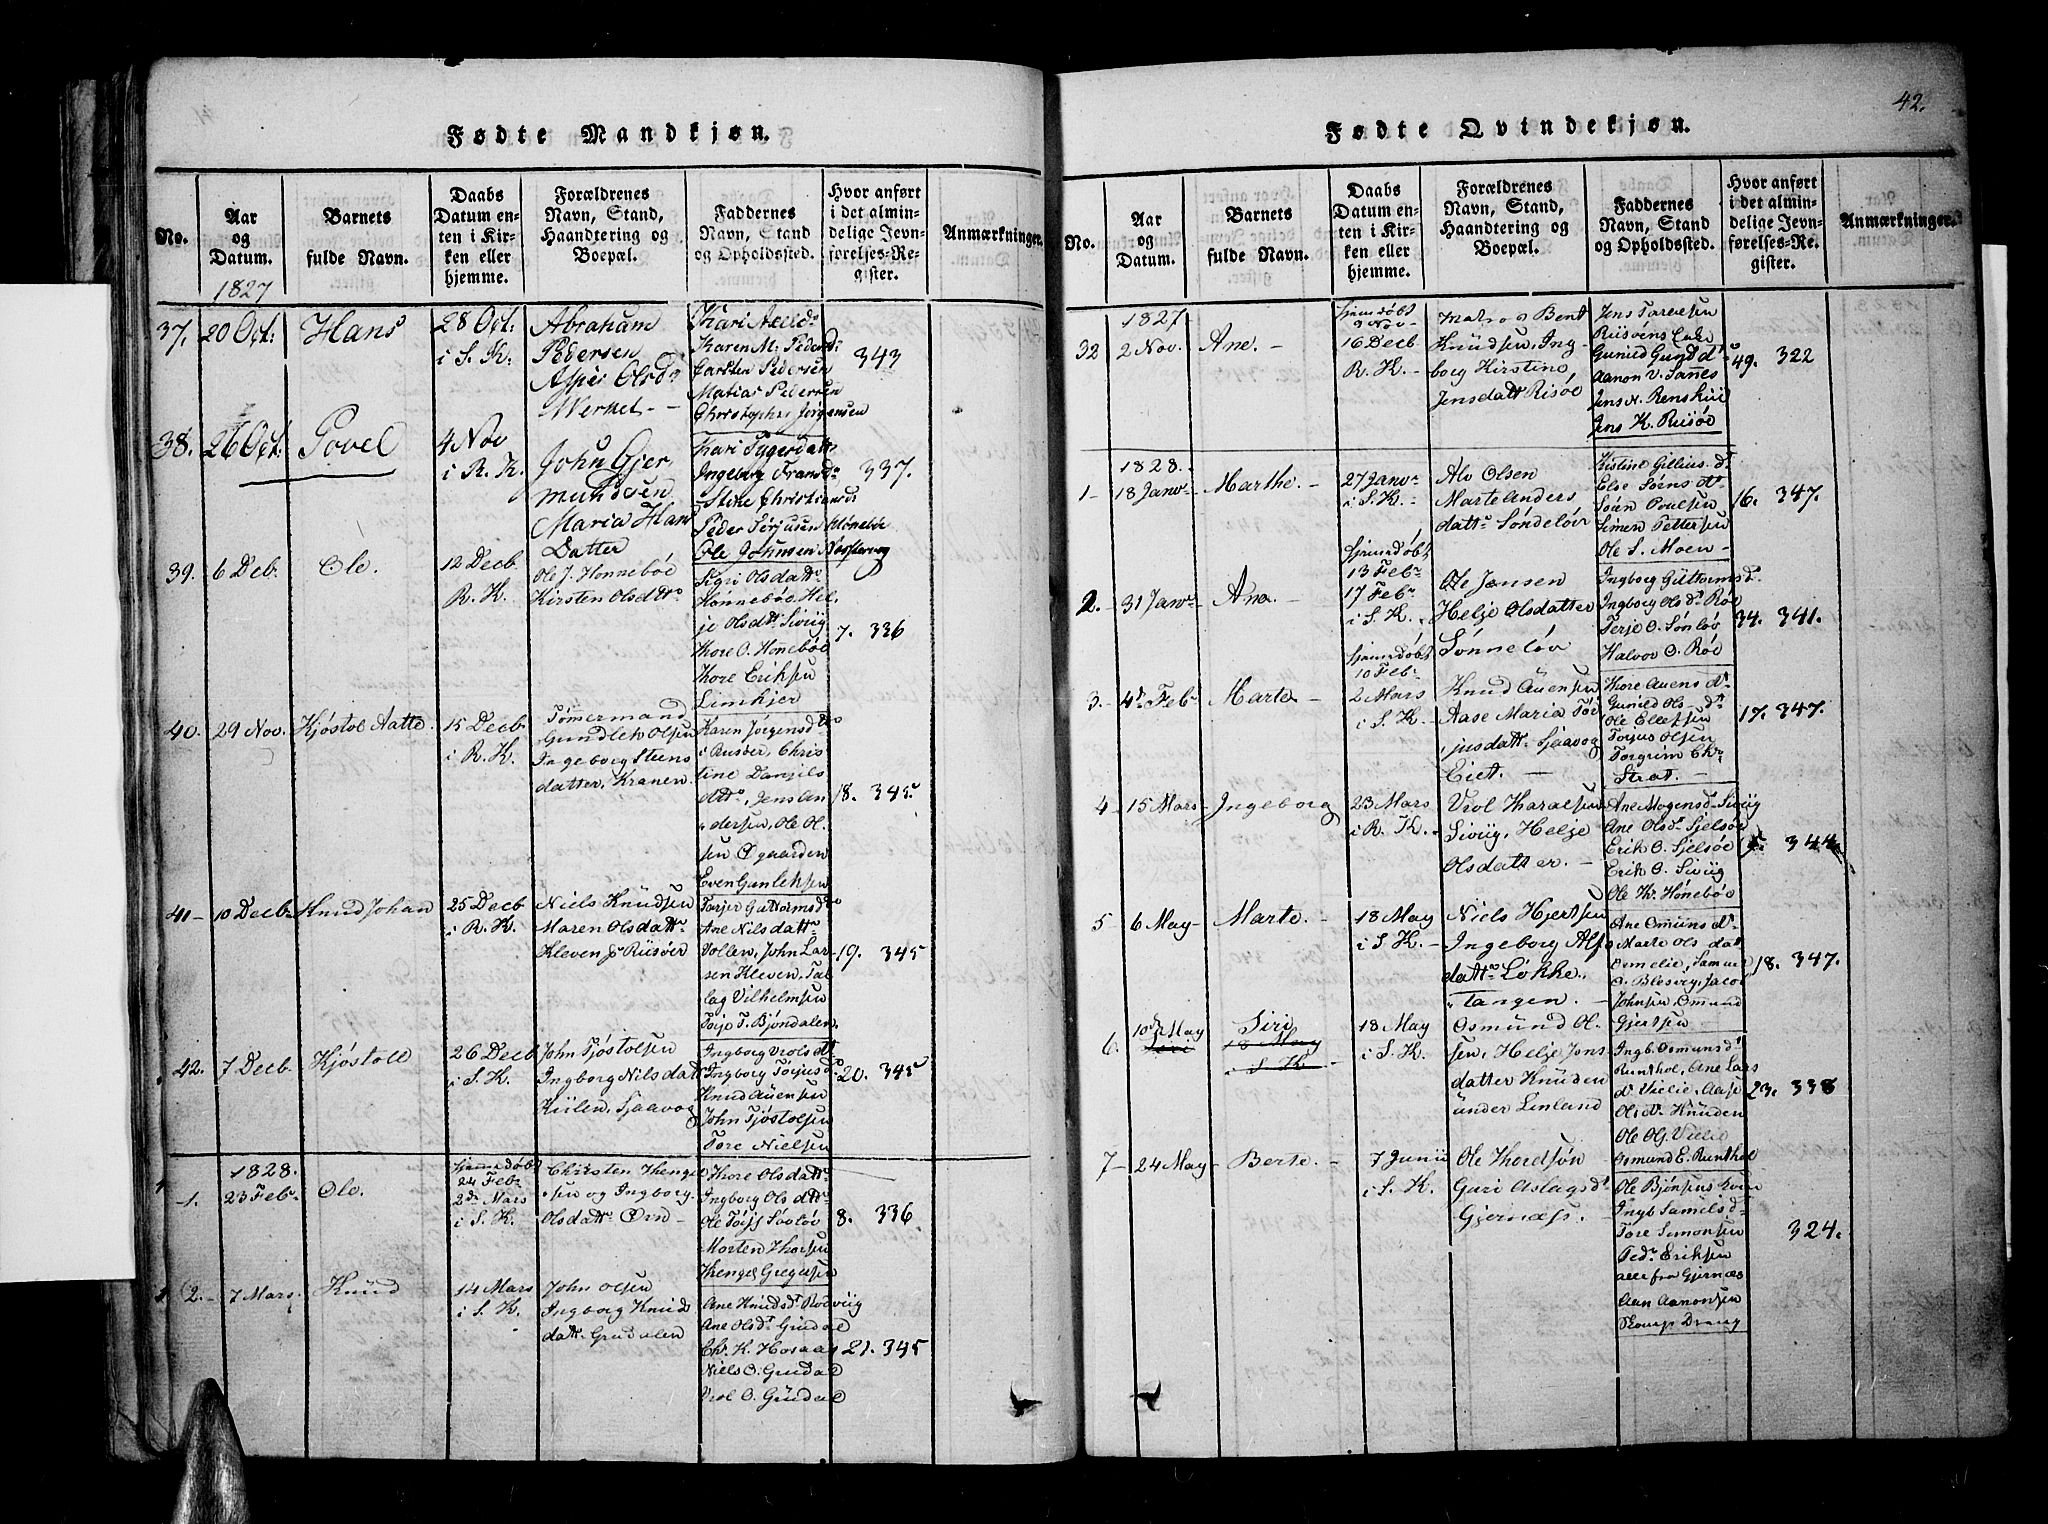 Fødte Mandkjøn.
No.
Aar og Datum.
Barnets fulde Navn.
Daabs Datum enten i Kirken eller hjemme.
Forældrenes Navn, Stand, Haandtering og Boepæl.
Faddernes Navn, Stand og Opholdssted.
Hvor anført i det almindelige Jevnførelses-Register.
Anmærkninger.
1827
37. 20 Oct: Hans
28 Oct:
i S. K.
Abraham
Pedersen
Olsd
Karen M. Pedersd
Carsten Pedersen
Matias Pedersen
Christopher Jørgensen
343
38. 26 Oct: Povel
4 Nov
i R. K.
John Gjer
mundsen
Maria Hans
Datter
Ingeborg Fransd
Ole Johnsen
337.
39. 6 Decb. Ole.
12 Decb
R. K.
Ole J. Hønnebøe
Kirsten Olsdtr
Sigri Olsdattr
Hønnebøe Hel
je Olsdattr Siviig
Thore O. Hønebøe
Thore Eriksen
Limkjer
7. 336
40. 29 Nov. Kjøstol Aatte
15 Decb
i R. K.
Tømermand
Gundlek Olsen
Ingeborg Steens
datter, Kranen
Karen Jørgensd
Chris
tine Daniels
dattr, Jens An
dersen, Ole Ol
sen Øgaarden
Even Gunleksen
18. 345
41 10 Decb. Knud Johan
25 Decb
i R. K.
Niels Knudsen
Maren Olsdattr
Kleven Riisøer
Torjer Guttormsd
Ane Nilsdattr
Vollen, John Lar
sen Kleven, Tal
lag Vilhelmsen
Torje T. Bjøndalen
19. 345
42. 7 Decb. Kjøstoll
26 Decb
i S. K.
John Tjøstolsen
Ingborg Nilsdatr
Kiilen, Sjaavog
Ingborg Vrolsd
Ingborg Torjusd
Knud Auensen
John Tjøstolsen
Tore Nielsen
20. 345
1828.
1. 23 Febr. Ole.
hjemdøbt
24 Feb
2dn Mars
i S. K.
Christen Thenge
sen og Ingborg
Olsdattr
Thore Olsdattr
Ingborg Olsdttr
Morten Thorsen
Thenges Gregersen
8. 336
2. 7 Mars Knud
14 Mars
i S. K.
John Olsen
Ingborg Knuds
datt. Grudalen
Ane Knudsd Rødviig
Ane Olsd Grudal
Chr. K. Hosaas
Niels O. Grudal
Vrol O. Grudal
21. 345
42.
Fødte Qvindekjøn.
No.
Aar og Datum.
Barnets fulde Navn.
Daabs Datum enten i Kirken eller hjemme.
Forældrenes Navn, Stand, Haandtering og Boepæl.
Faddernes Navn, Stand og Opholdssted.
Hvor anført i det almindelige Jevnførelses-Register.
Anmærkninger.
1827
32 2 Nov. Ane.
hjemdøbt
9 Nov
16 Decb
R. K.
Matros Bent
Knudsen, Ing
borg Kirstine
Jensdatt Risøe
Jens Tarvesen
Gunild Gundd
Jens K. Riisøe
49. 322
1828.
1 18 Janv Marthe.
27 Janv
i S. K.
Alv Olsen
Marte Anders
dattr Søndeløv
Kistine Gilliusd
Else Sørensd
Søren Povelsen
Simen Pettersen
Ole S. Moen
16. 347.
2. 31 Janv Ane.
hjemdøbt
13 Febr
17 Febr
i S. K.
Ole Jensen
Helje Olsdatter
Sønneløv
Ingborg Guttormsd
Ingborg Olsd Røe
Terje O. Sønløv
Halvor O. Røe
34. 341.
3. 4d Feb Marte
hjemdøbt
10 Feb
2 Mars
i S. K.
Knud Auensen
Aase Maria Tor
jusdatt Sjaavog
Eiet.
Thore Auensd
Gunild Olsd
Ole Ellefsen
Torjus Olsen
Torgrim Chr
Strat.
17. 347.
4 15 Mars Ingeborg
23 Mars
i R. K.
Vrol Tharalsen
Siviig, Helje
Olsdatter.
Ane Mogensd Siviig
Ane Olsd Sjelsøe
Erik O. Sjelsøe
Erik O. Siviig
Ole Th. Hønebøe
344
5 6 May Marte
18 May
i S. K.
Niels Hjertsen
Ingeborg Alfs
dattr Løkke
tangen.
Ane Omunsd
Marte Olsdat
Ormelie, Samuel
O. Blesvig, Jacob
Johnsen, Omund
Gjertsen
18. 347.
6. 10d May Siri
18 May
i S. K.
18 May
i S. K.
Osmund Ol
sen, Helje Jons
datter Knuden
under Linland
Ingb. Osmunsd
Runthol, Ane Lars
d Vielie, Aase
Olsd Knuden
Ole Ol. Vielie
Osmund E. Runthol
23. 338
7 24 May Berte.
7 Junii
i S. K.
Ole Thordsøn
Guri Aslagsd
Gjernæss.
Ole Bjønsen
Ingb Samilsd
Tore Simonsen
Pedr Eriksen
alle fra Gjernæs
Aan Aanonsen
Komp Dreng
324.